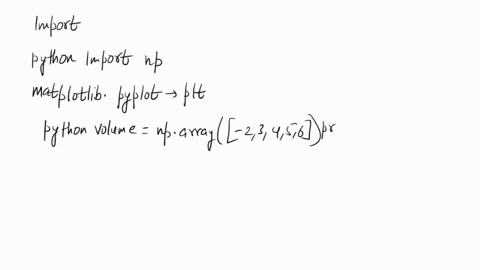 Import
python import np
matplotlib. pyplot → plt
python volume = np.array([-2,3,4,5,6])pr